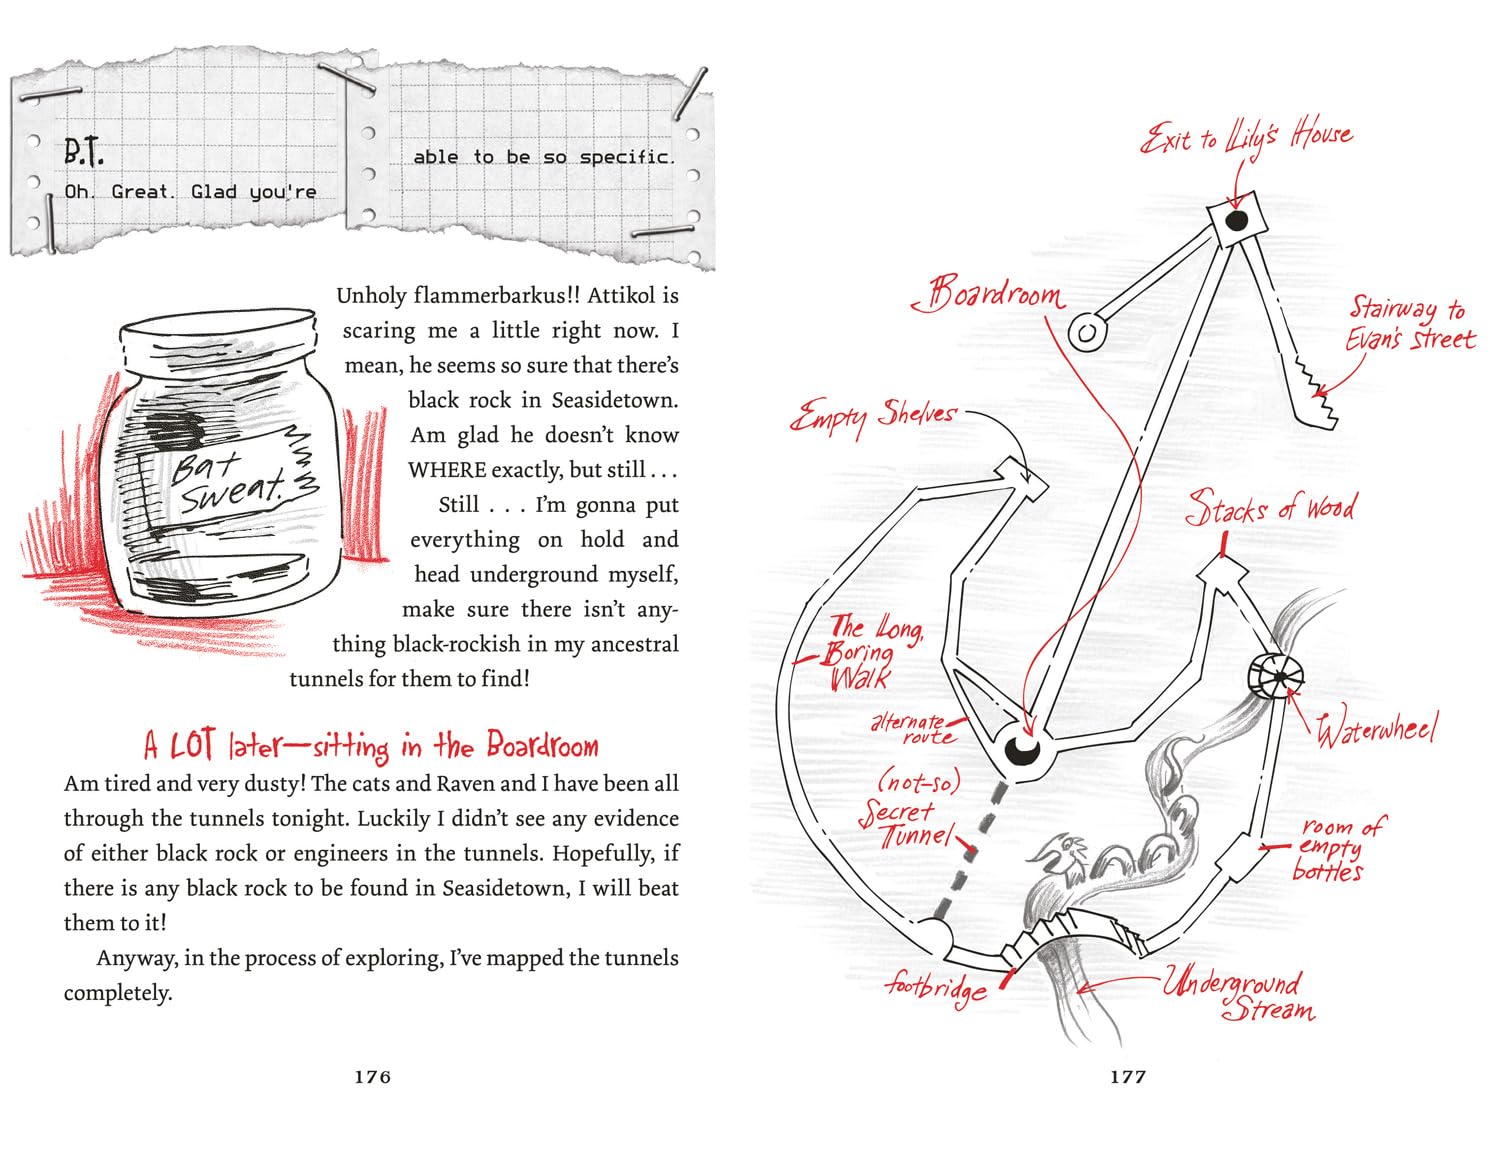 B.T.
Oh. Great. Glad you're
able to be so specific.
Unholy flammerbarkus!! Attikol is
scaring me a little right now. I
mean, he seems so sure that there’s
black rock in Seasidetown.
Am glad he doesn’t know
WHERE exactly, but still . . .
Still . . . I’m gonna put
everything on hold and
head underground myself,
make sure there isn’t any-
thing black-rockish in my ancestral
tunnels for them to find!
Bat
Sweat.
A LOT later—sitting in the Boardroom
Am tired and very dusty! The cats and Raven and I have been all
through the tunnels tonight. Luckily I didn’t see any evidence
of either black rock or engineers in the tunnels. Hopefully, if
there is any black rock to be found in Seasidetown, I will beat
them to it!
Anyway, in the process of exploring, I’ve mapped the tunnels
completely.
176
Exit to Lily's House
Boardroom
Stairway to
Evan's street
Empty Shelves
Stacks of Wood
The Long,
Boring
Walk
alternate
route
Waterwheel
(not-so)
Secret
Tunnel
room of
empty
bottles
footbridge
Underground
Stream
177